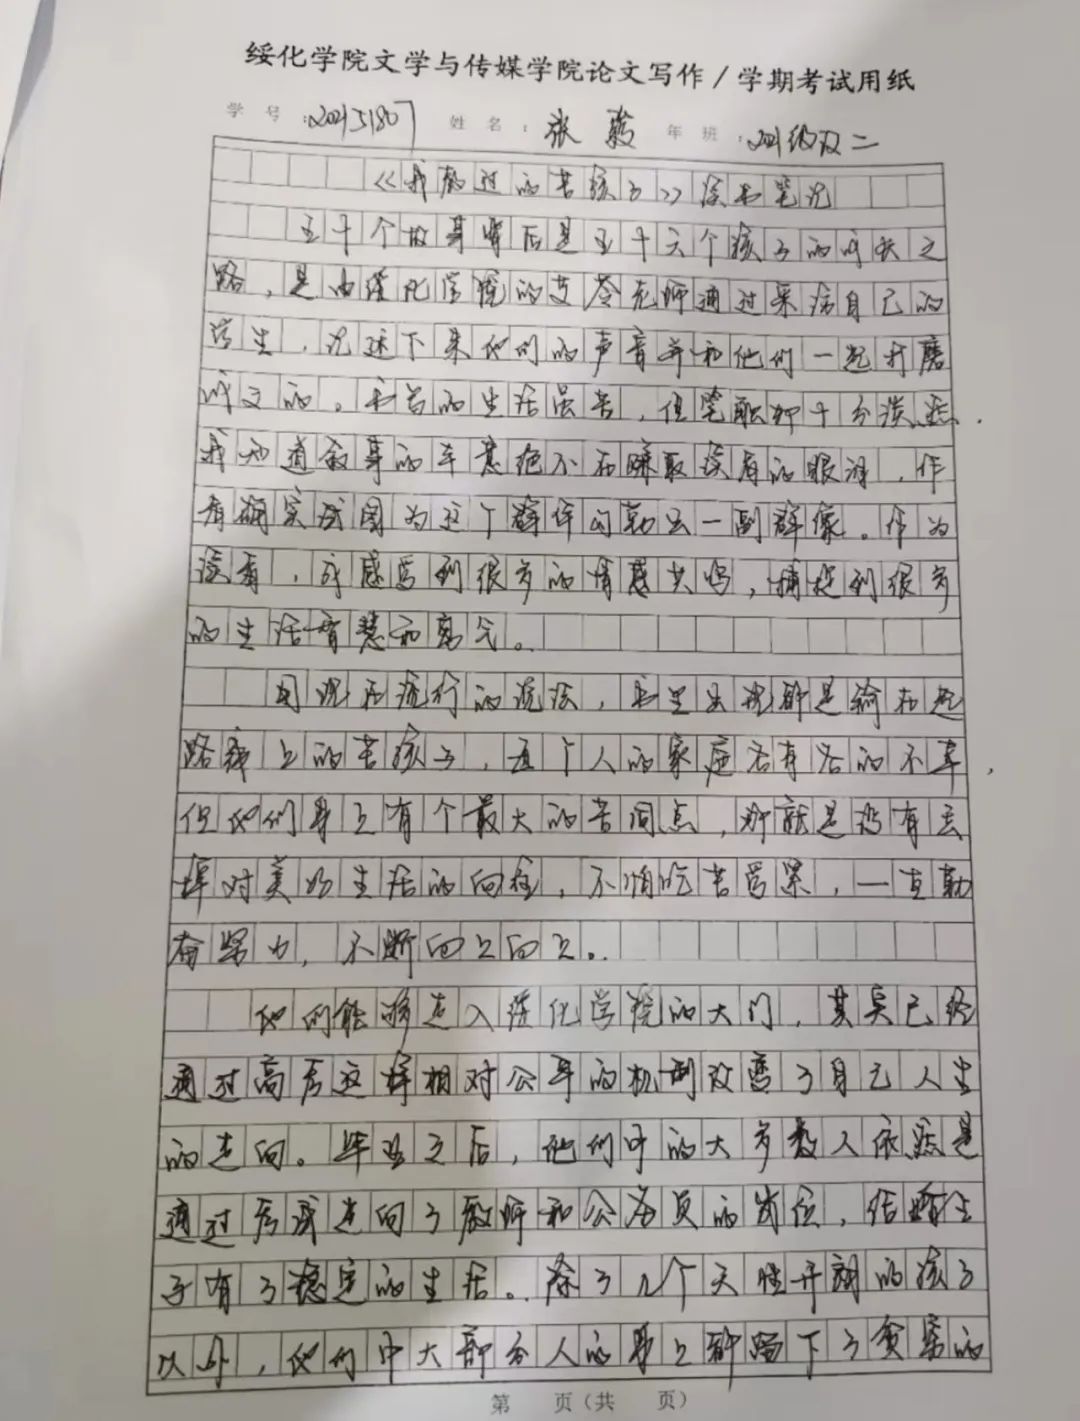 绥化学院文学与传媒学院论文写作/学期考试用纸
学号:202151807 姓名:张 年班:2021级汉二
《我教过的苦孩子》读书笔记
五十个故事背后是五十六个孩子的成长之
路，是由绥化学院的艾苓老师通过采访自己的
学生，记述下来他们的声音并和他们一起打磨
成文的。书写的生活虽苦，但笔触却十分淡然。
我知道叙事的本意绝不在赚取读者的眼泪，作
者确实试图为这个群体勾勒出一副群像。作为
读者，我感受到很多的情感共鸣，捕捉到很多
的生活智慧和勇气。
用现在流行的说法，书里出现都是输在起
跑线上的苦孩子，每个人的家庭各有各的不幸，
但他们身上有个最大的共同点，那就是没有丢
掉对美好生活的向往，不怕吃苦受累，一直勤
奋努力，不断向上向上。
他们能够走入绥化学院的大门，其实已经
通过高考这样相对公平的机制改变了自己人生
的走向。毕业之后，他们中的大多数人依然是
通过考试走向了教师和公务员的岗位，结婚生
子有了稳定的生活。除了几个天性开朗的孩子
以外，他们中大部分人的身上都留下了贫穷的
第 页（共 页）